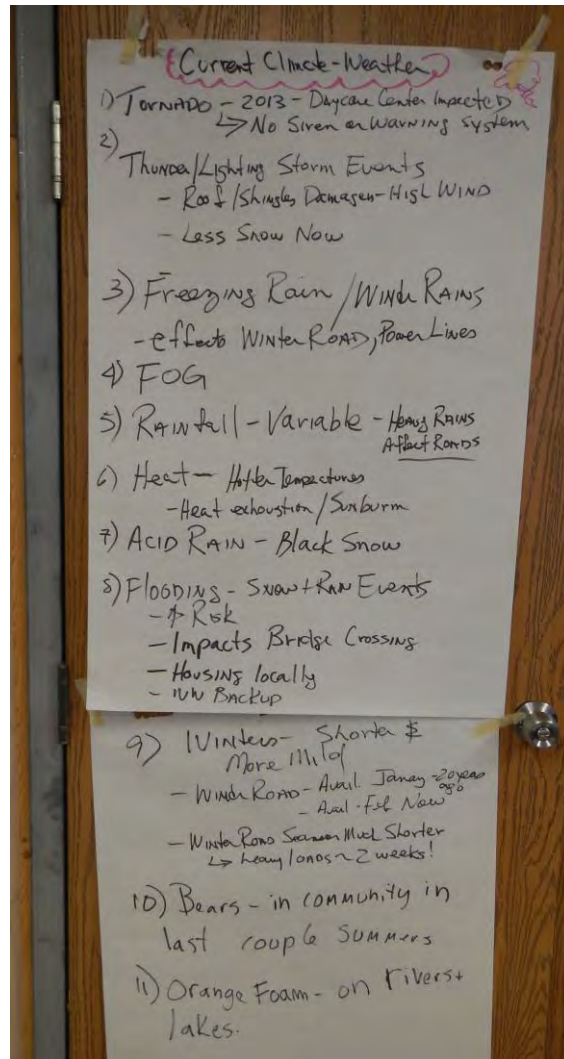 Current Climate-Weather
1) TORNADO - 2013 - Daycare Center Impacted
↳ No Siren or Warning System
2)
Thunder/Lighting Storm Events
- Roof/Shingles Damage - High WIND
- Less Snow Now
3) Freezing Rain / Winter RAINS
- effects Winter ROAD, Power Lines
4) FOG
5) RAINfall - Variable - Heavy RAINS
Affect ROADS
6) Heat - Hotter Tempectures
- Heat exhaustion / Sunburn
7) ACID RAIN - Black Snow
8) Flooding - Snow + Rain Events
- ↑ Risk
- Impacts Bridge Crossing
- Housing locally
- WW Backup
9) Winters - Shorter &
More Mild
- Winter ROAD - Avail 20 years
ago
- Avail - Feb Now
- Winter Road Season Much Shorter
↳ heavy loads ~ 2 weeks!
10) Bears - in community in
last couple summers
11) Orange Foam - on rivers +
lakes.